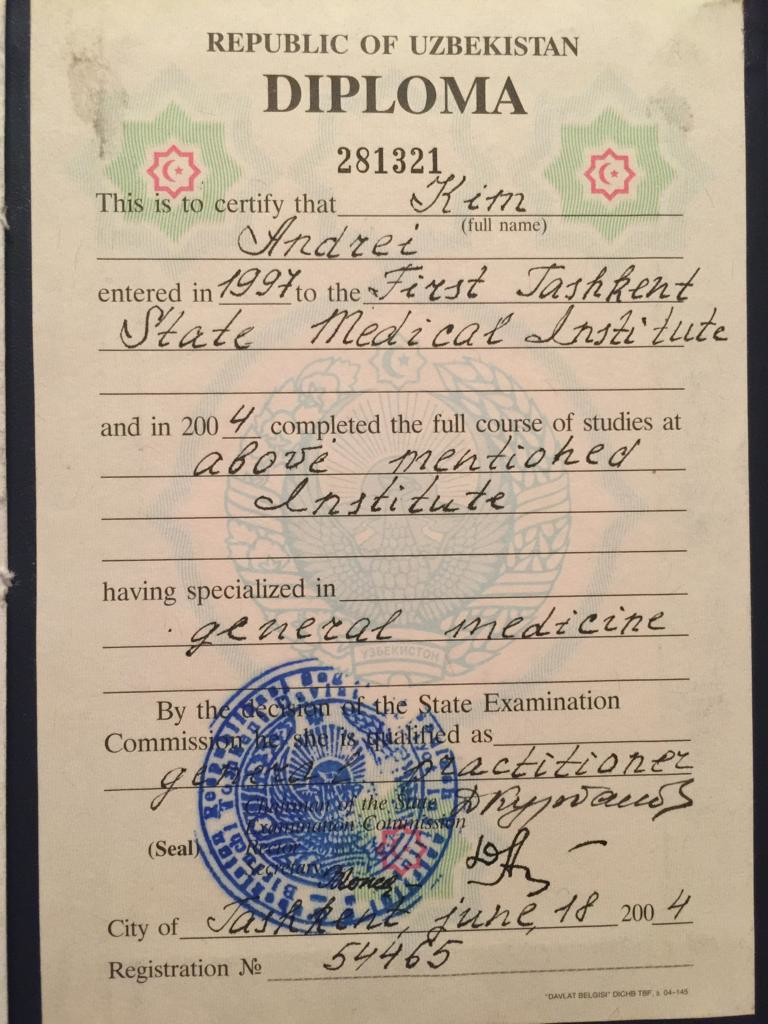 REPUBLIC OF UZBEKISTAN
DIPLOMA
281321
This is to certify that Kim
(full name)
Andrei
entered in 1997 to the First Tashkent
State Medical Institute
and in 2004 completed the full course of studies at
above mentioned
Institute
having specialized in
general medicine
УЗБЕКИСТОН
By the decision of the State Examination
Commission he, she is qualified as
general practitioner
Chairman of the State
Examination Commission
(Seal) Rector
Secretary
City of Tashkent, june, 18 2004
Registration № 54465
"DAVLAT BELGISI" DICHB TBF, з. 04-145